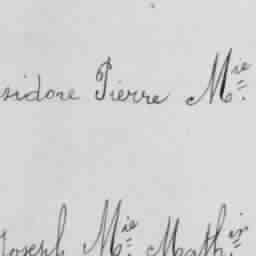 sidore Pierre M.ie
Joseph M.ie Math.in